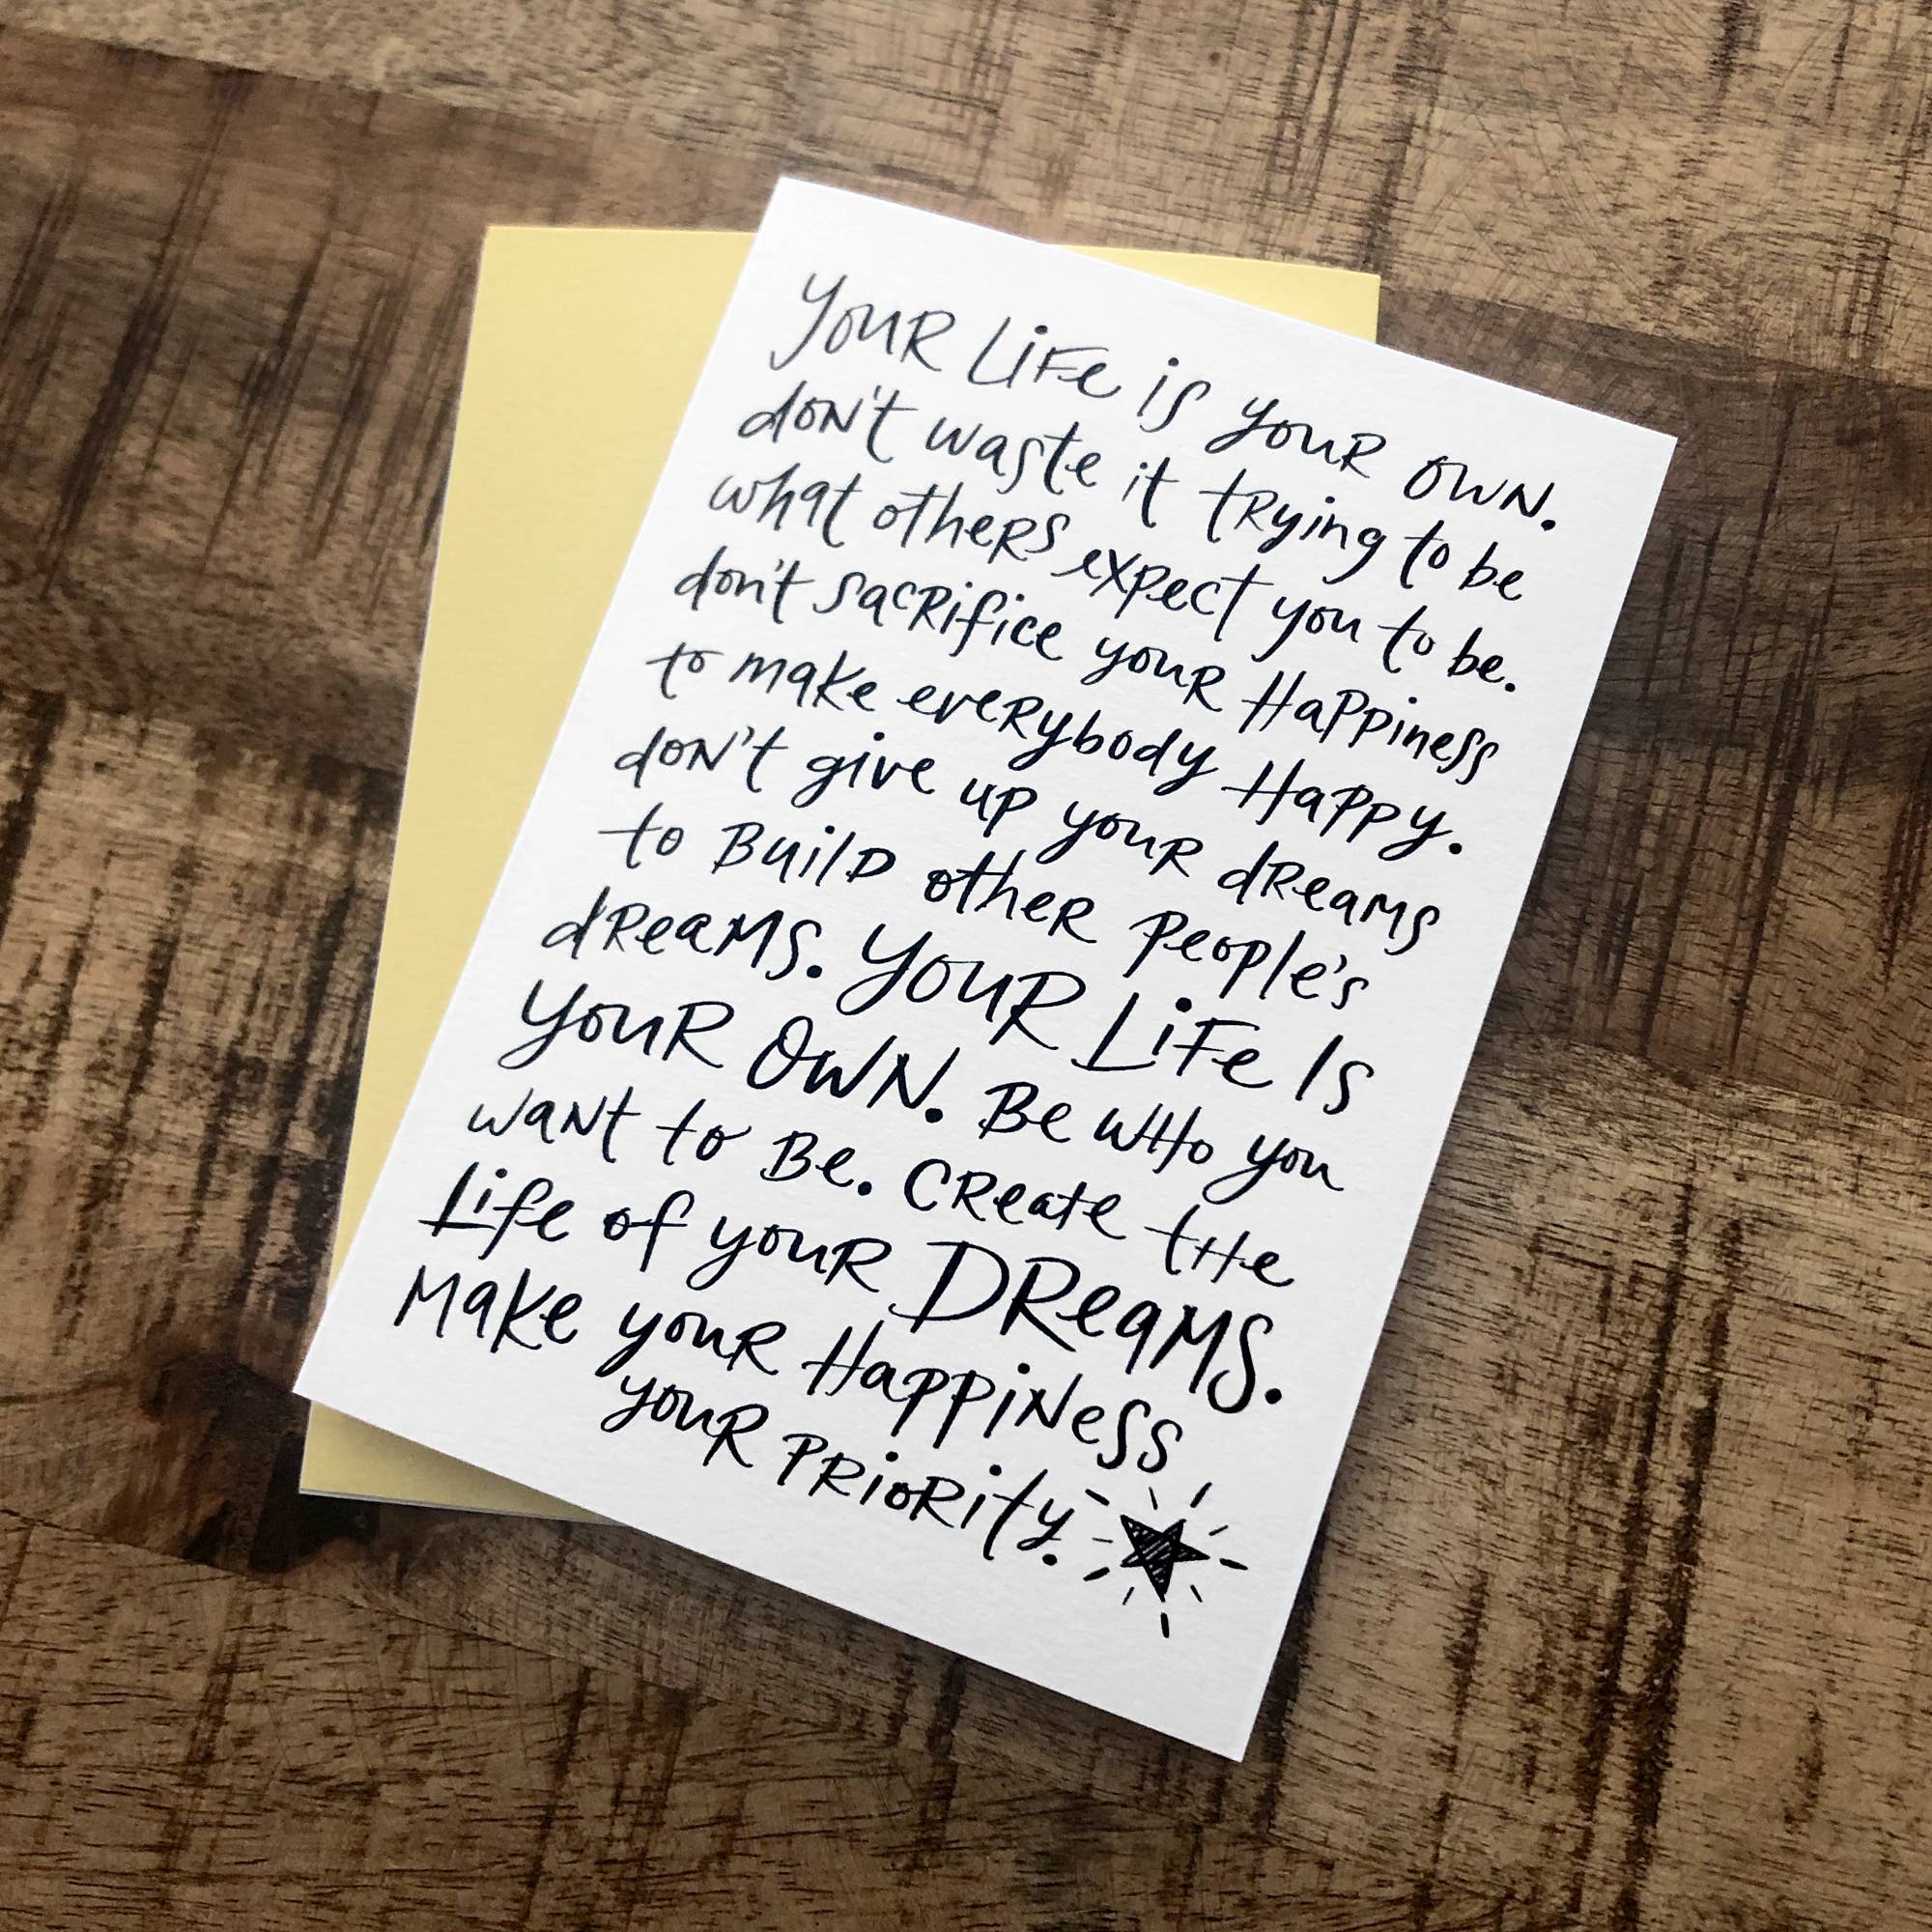 Your Life is your own.
don't waste it trying to be
what others expect you to be.
don't sacrifice your Happiness
to make everybody Happy.
don't give up your dreams
to Build other People's
dreams. Your Life Is
Your Own. Be Who you
want to Be. Create the
Life of your Dreams.
Make your Happiness
your Priority.